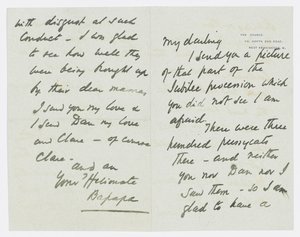 THE GRANGE,
49, NORTH END ROAD,
WEST KENSINGTON, W.
My darling
I send you a picture
of that part of the
Jubilee procession which
you did not see I am
afraid.
There were three
hundred pussycats
there – and neither
you nor Dan nor I
saw them – so I am
glad to have a
with disgust at such
conduct – I was glad
to see how well they
were being brought up
by their dear mamas
I send you my love &
I send Dan my love
and Clare – of course
Clare –
and am
Your
Bapapa